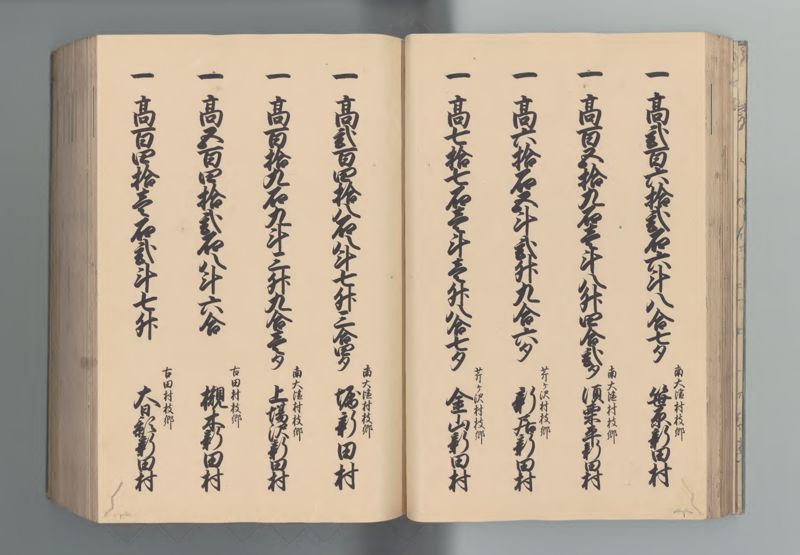 一 高弐百六拾弐石六斗八合七夕
南大塩村枝郷
笹原新田村
一 高百五拾九石壱斗八升四合弐夕
南大塩村枝郷
須栗平新田村
一 高六拾石五斗弐升九合六夕
芹ヶ沢村枝郷
新屋新田村
一 高七拾七石壱斗壱升八合七夕
芹ヶ沢村枝郷
金山新田村
一 高弐百四拾八石八斗七升三合四夕
南大塩村枝郷
堀新田村
一 高百拾九石九斗三升九合壱夕
南大塩村枝郷
上場沢新田村
一 高五百四拾弐石八斗六合
古田村枝郷
槻木新田村
一 高百四拾壱石弐斗七升
古田村枝郷
大日影新田村